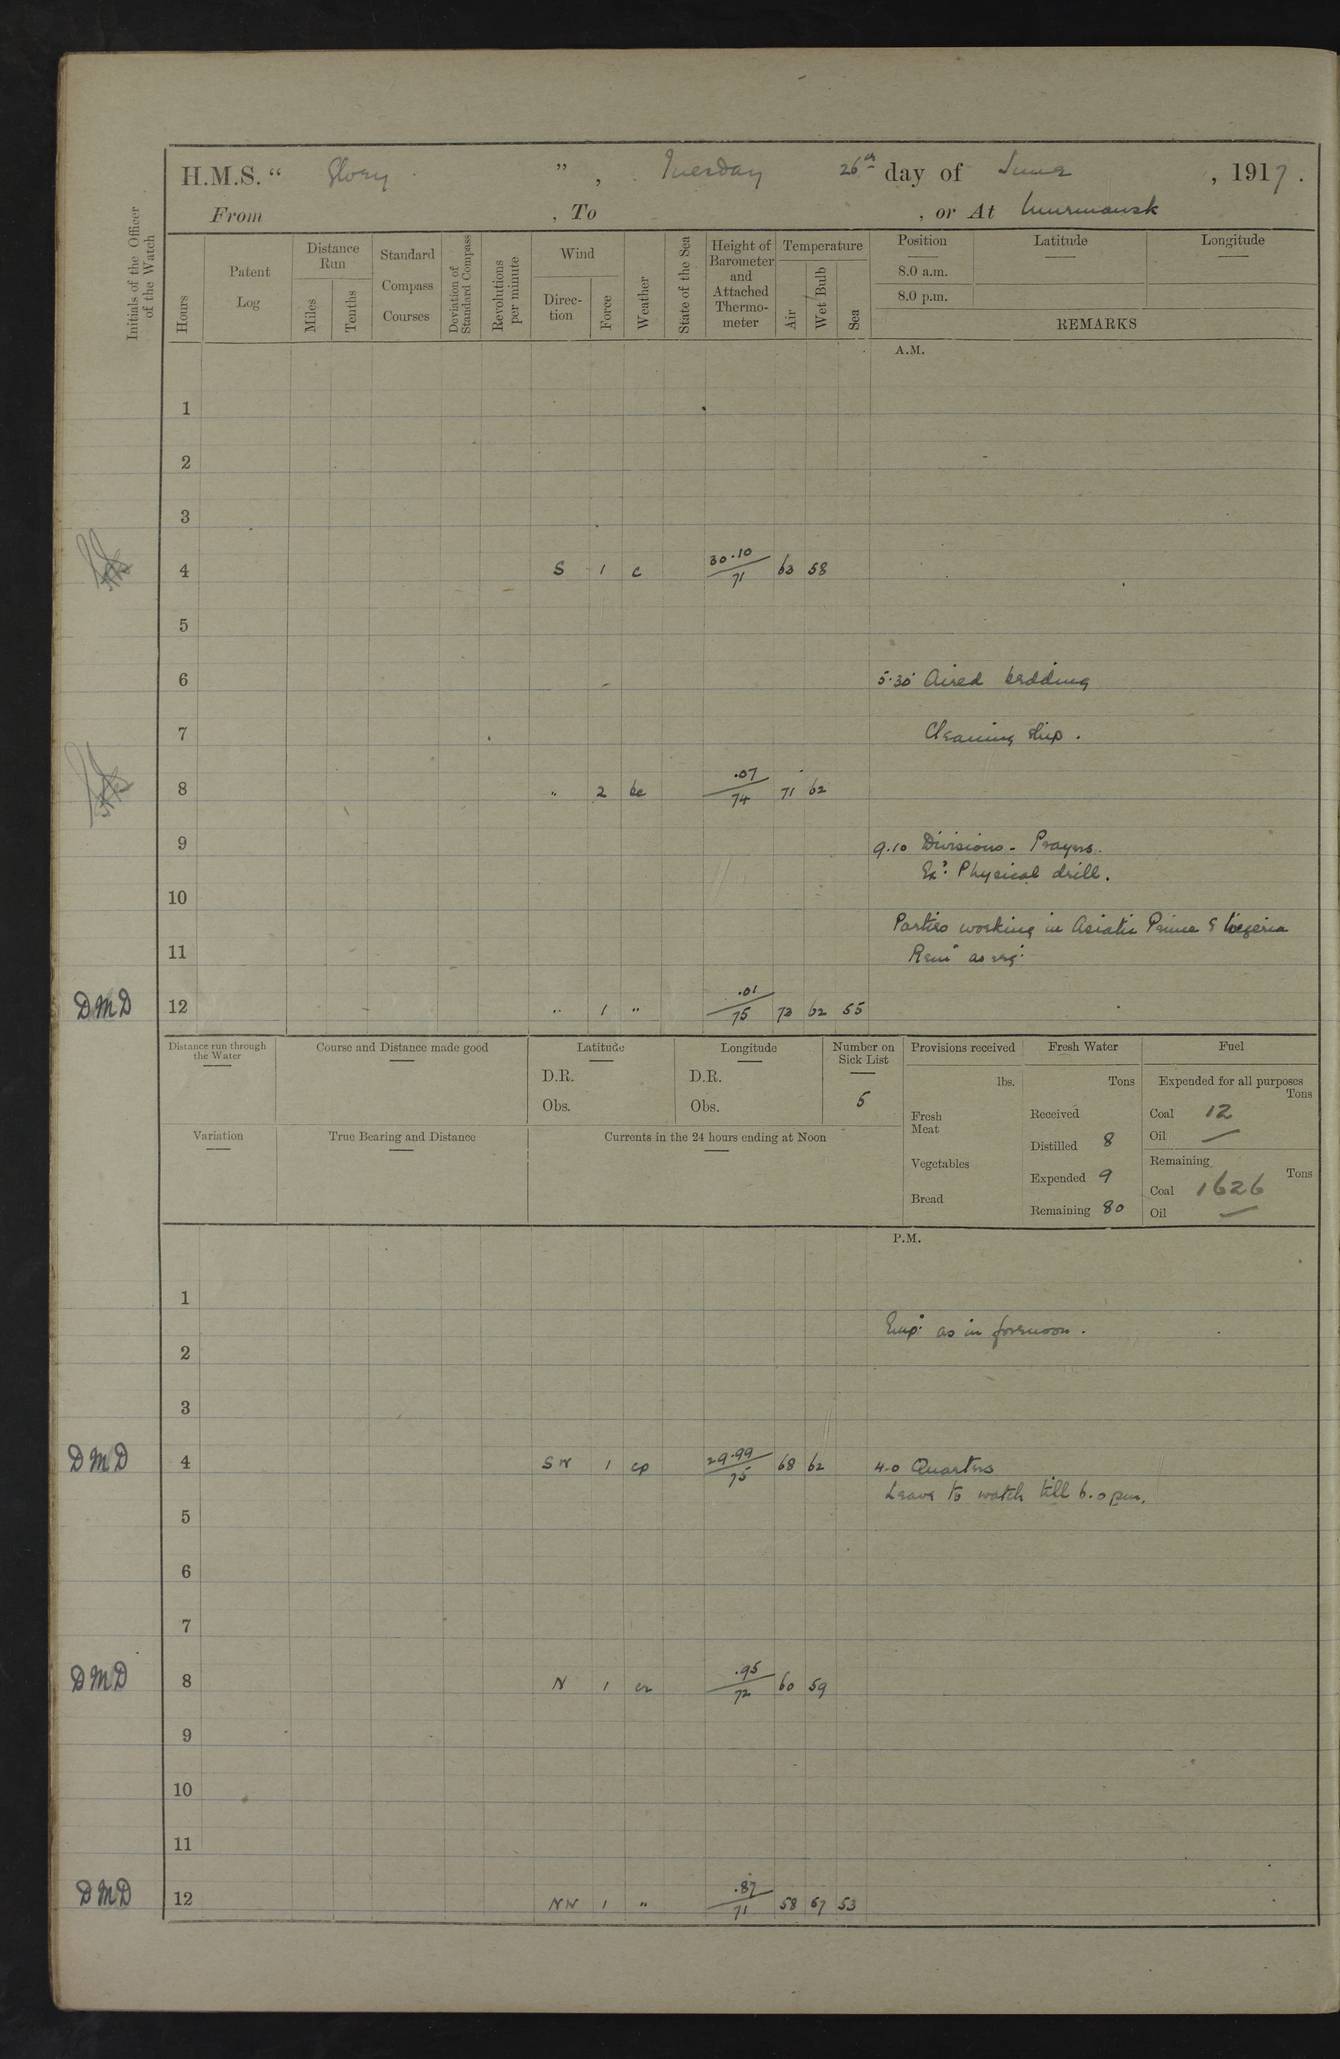 H.M.S. " Glory " , Tuesday 26th day of June , 1917 .
From , To , or At Murmansk
Initials of the Officer of the Watch
Hours
Patent Log
Distance Run
Miles
Tenths
Standard Compass Courses
Deviation of Standard Compass
Revolutions per minute
Wind
Direc-tion
Force
Weather
State of the Sea
Height of Barometer and Attached Thermo-meter
Temperature
Air
Wet Bulb
Sea
Position
8.0 a.m.
8.0 p.m.
Latitude
Longitude
REMARKS
A.M.
1
2
3
4 S 1 c 30.10/71 63 58
5
6 5.30 Aired bedding
7 Cleaning ship.
8 " 2 bc .07/74 71 62
9 9.10 Divisions - Prayers.
Ex: Physical drill.
10
Parties working in Asiatic Prince &
11 Rem: as req:
DMD 12 " 1 " .01/75 73 62 55
Distance run through the Water
Course and Distance made good
Latitude
D.R.
Obs.
Longitude
D.R.
Obs.
Number on Sick List
5
Provisions received
lbs.
Fresh Meat
Vegetables
Bread
Fresh Water
Tons
Received
Distilled 8
Expended 9
Remaining 80
Fuel
Expended for all purposes
Tons
Coal 12
Oil —
Remaining
Tons
Coal 1626
Oil —
Variation
True Bearing and Distance
Currents in the 24 hours ending at Noon
P.M.
1
Emp: as in forenoon.
2
3
DMD 4 SW 1 cp 29.99/75 68 62 4.0 Quarters
Leave to watch till 6.0 pm.
5
6
7
DMD 8 N 1 cr .95/72 60 59
9
10
11
DMD 12 NW 1 " .87/71 58 57 53